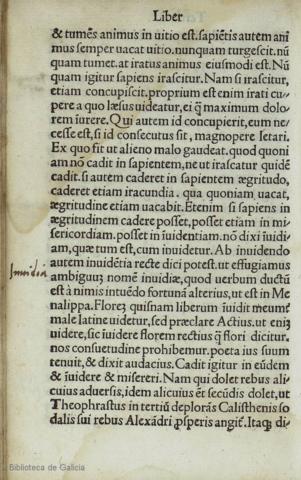 Liber
& tumēs animus in uitio est. sapiētis autem ani
mus semper uacat uitio. nunquam turgescit. nū
quam tumet. at iratus animus eiusmodi est. Nū
quam igitur sapiens irascitur. Nam si irascitur,
etiam concupiscit. proprium est enim irati cu-
pere a quo læsus uideatur, ei q̄ maximum dolo
rem iurere. Qui autem id concupierit, eum ne-
cesse est, si id consecutus sit, magnopere letari.
Ex quo fit ut alieno malo gaudeat. quod quoni
am nō cadit in sapientem, ne ut irascatur quidē
cadit. si autem caderet in sapientem ægritudo,
caderet etiam iracundia. qua quoniam uacat,
ægritudine etiam uacabit. Etenim si sapiens in
ægritudinem cadere posset, posset etiam in mi-
sericordiam. posset in īuidentiam. nō dixi īuidi/
am, quæ tum est, cum inuidetur. Ab inuidendo
autem inuidētia recte dici potest. ut effugiamus
Inuidia
ambiguū nomē inuidiæ, quod uerbum ductū
est à nimis intuēdo fortunā alterius, ut est in Me
nalippa. Florē quisnam liberum īuidit meum?
male latine uidetur, sed præclare Actius. ut enim
uidere, sic īuidere florem rectius q̄ flori dicitur.
nos consuetudine prohibemur. poeta ius suum
tenuit, & dixit audacius. Cadit igitur in eūdem
& īuidere & misereri. Nam qui dolet rebus ali-
cuius aduersis, idem alicuius ēt secūdis dolet, ut
Theophrastus in tertiū deplorās Callisthenis so
dalis sui rebus Alexādri ꝓsperis angit. Itaq; di
Biblioteca de Galicia